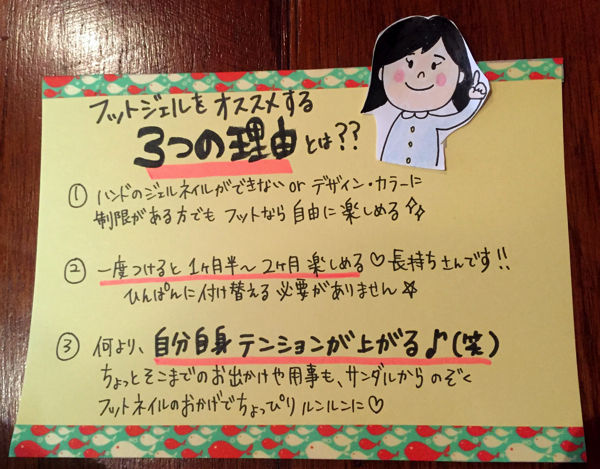 フットジェルをオススメする
3つの理由とは??
① ハンドのジェルネイルができない or デザイン・カラーに
制限がある方でも フットなら 自由に楽しめる✧✧
② 一度つけると 1ヶ月半〜2ヶ月 楽しめる♡長持ちさんです!!
ひんぱんに付け替える 必要がありません☆
③ 何より、自分自身テンションが上がる♪(笑)
ちょっとそこまでのお出かけや用事も、サンダルからのぞく
フットネイルのおかげでちょっぴりルンルンに♡